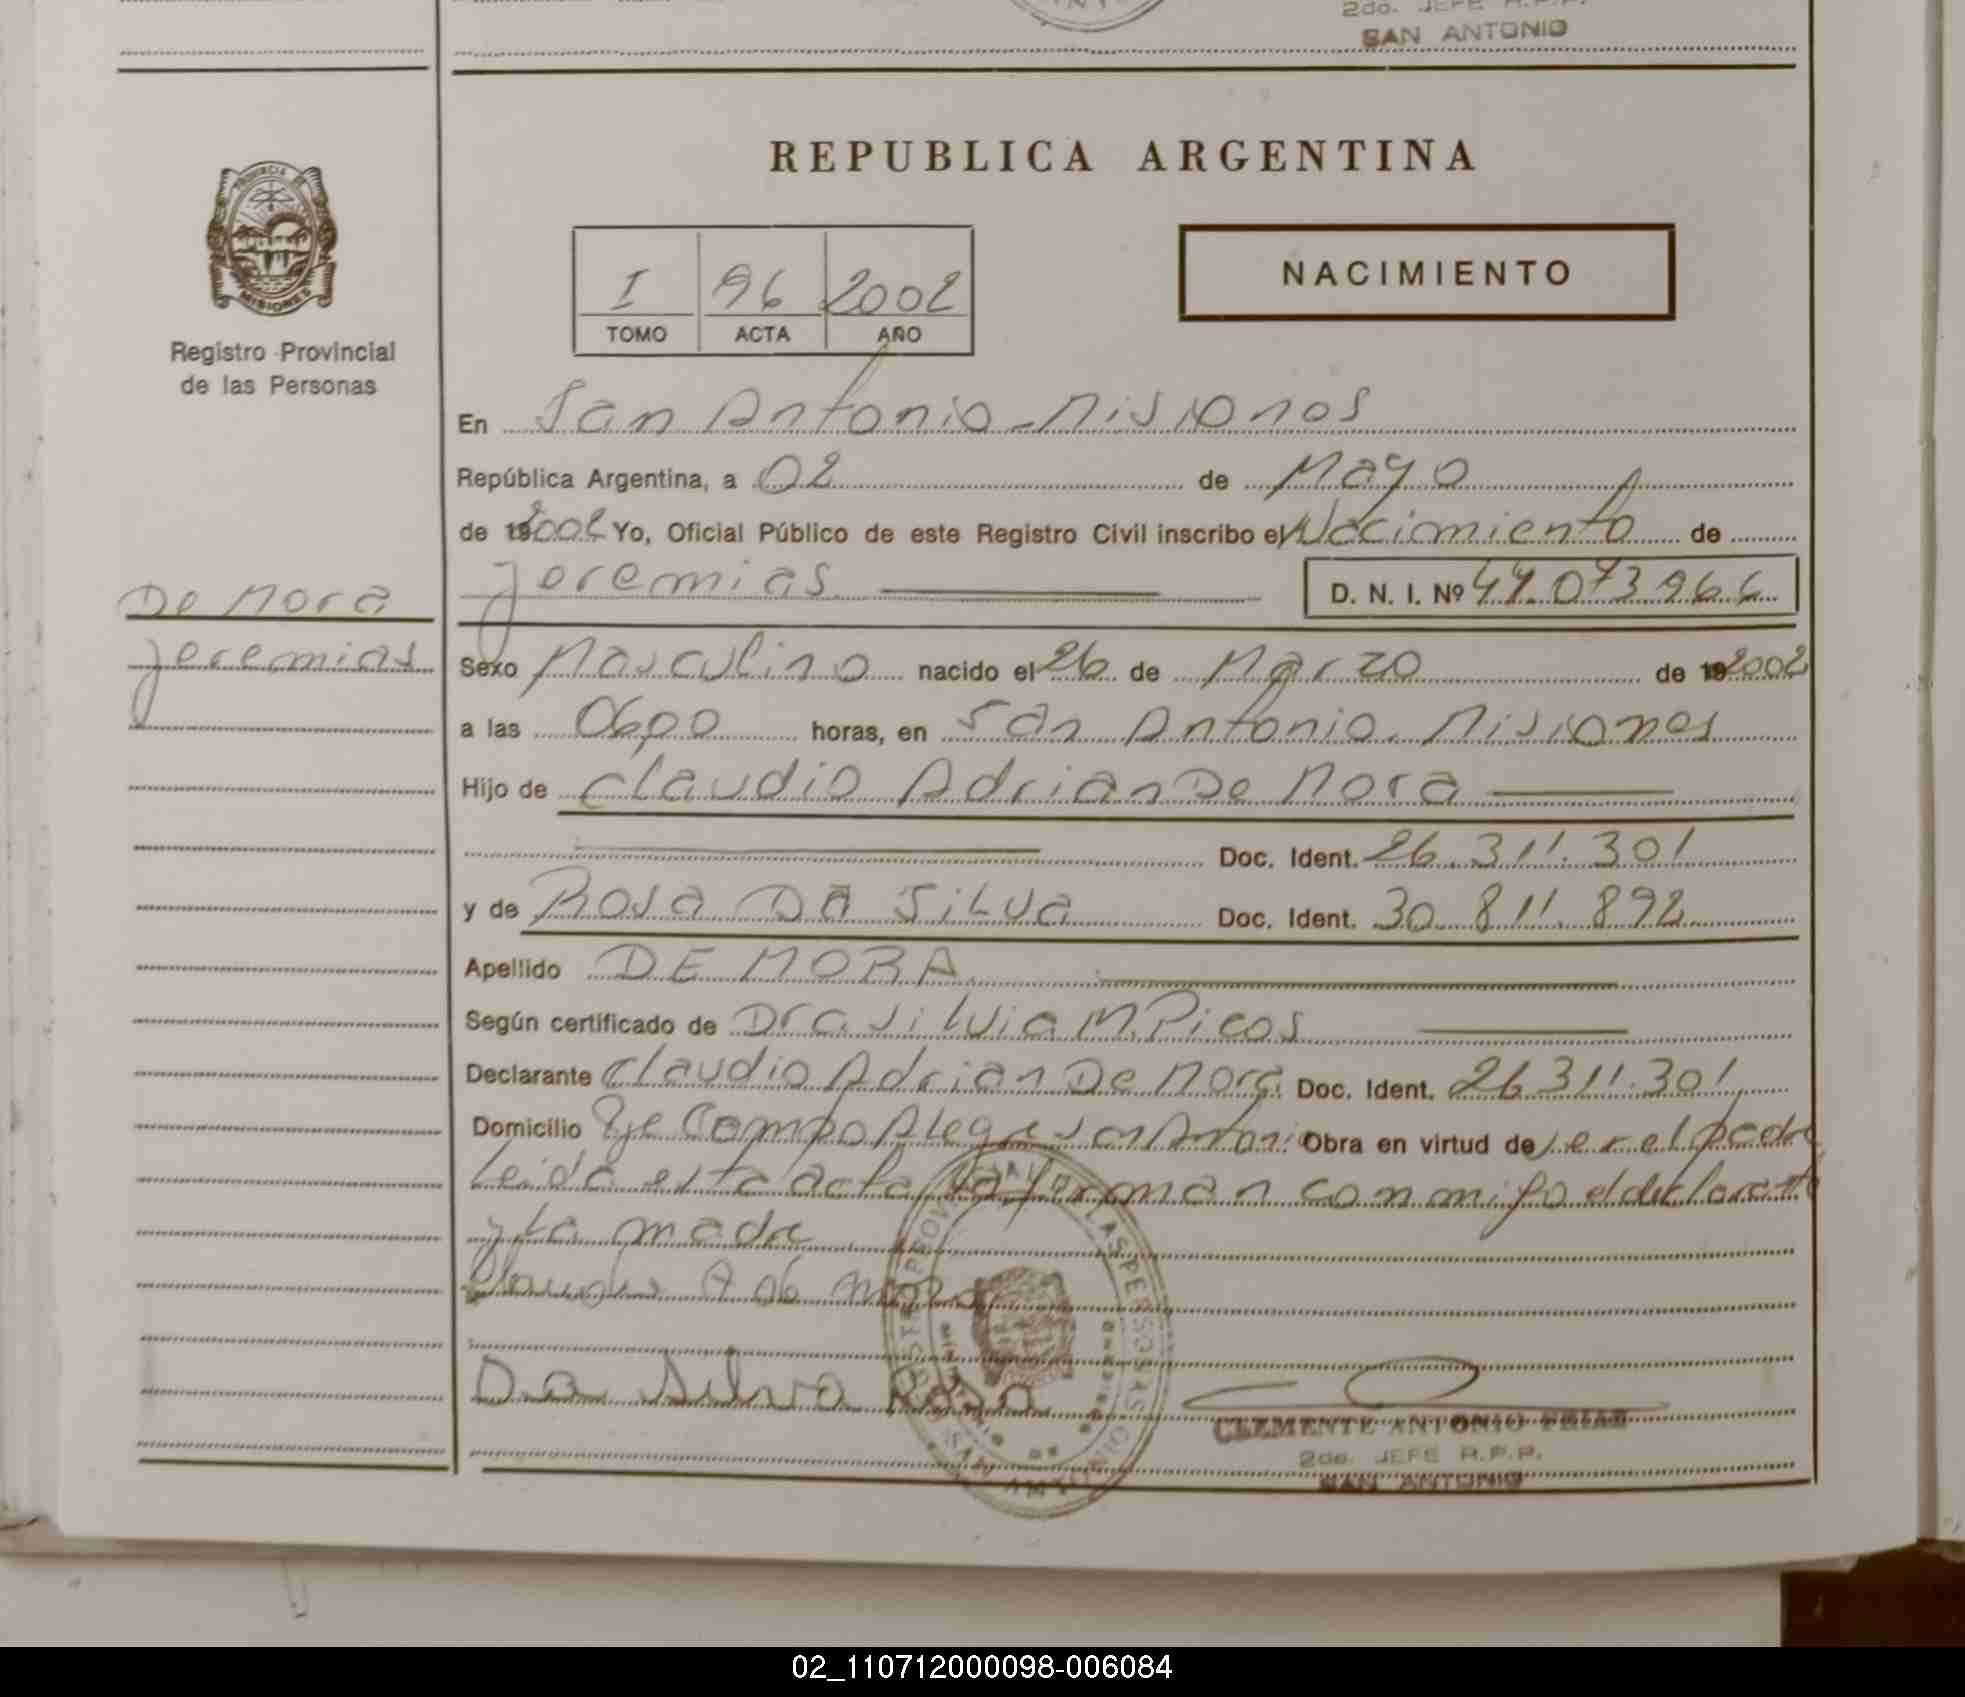 2do. JEFE R.P.P.
SAN ANTONIO
REPUBLICA ARGENTINA
PROVINCIA DE
MISIONES
Registro Provincial
de las Personas
I 96 2002
TOMO ACTA AÑO
NACIMIENTO
En San Antonio - Misiones
República Argentina, a 02 de Mayo
de 2002 Yo, Oficial Público de este Registro Civil inscribo el Nacimiento de
Jeremias D. N. I. Nº
De Mora
Jeremias
Sexo Masculino nacido el 26 de Marzo de 19 2002
a las 0600 horas, en San Antonio - Misiones
Hijo de Claudio Adrian De Mora
Doc. Ident. 26.311.301
y de Rosa Da Silva Doc. Ident. 30.811.892
Apellido DE MORA
Según certificado de Dra. Silvia M. Picos
Declarante Claudio Adrian De Mora Doc. Ident. 26.311.301
Domicilio Pje Campo Alegre San Antonio Obra en virtud de ser el padre
Leida esta acta la forman conmigo el declarante
y la madre
Claudio A de Mora
Da Silva Rosa
CLEMENTE ANTONIO FRIAS
2do. JEFE R.P.P.
SAN ANTONIO
02_110712000098-006084